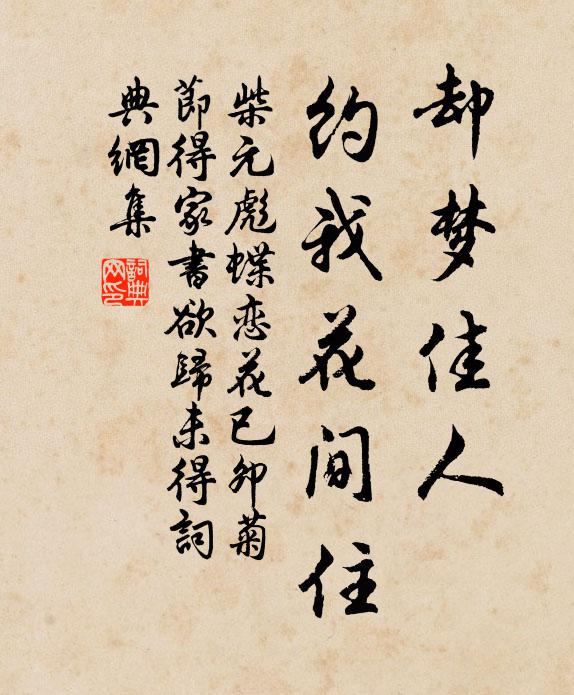 却梦佳人
约我花间住
柴元彪蝶恋花已卯菊
節得家書欲歸未得詞
典網集
詞典
网印